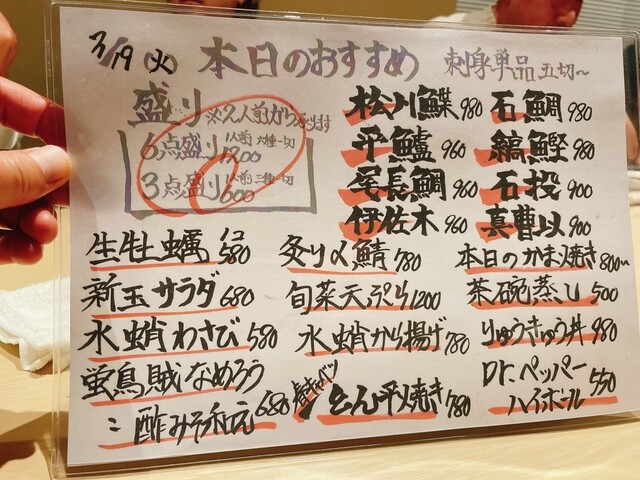 3/19 火 本日のおすすめ 刺身単品 五切~
盛り ※2人前からになります
6点盛り 1人前 六種一切 1200
3点盛り 1人前 三種一切 600
松川鰈 980 石鯛 980
平鱸 960 縞鰹 980
尾長鯛 960 石投 900
伊佐木 960 真曹以 900
生牡蠣 1コ 580 炙り〆鯖 780 本日のかま焼き 800~
新玉サラダ 680 旬菜天ぷら 1200 茶碗蒸し 500
水蛸わさび 580 水蛸から揚げ 780 りゅうきゅう丼 980
蛍烏賊なめろう
酢みそ和え 680 春キャベツ とん平焼き 780
Dr.ペッパー
ハイボール 550